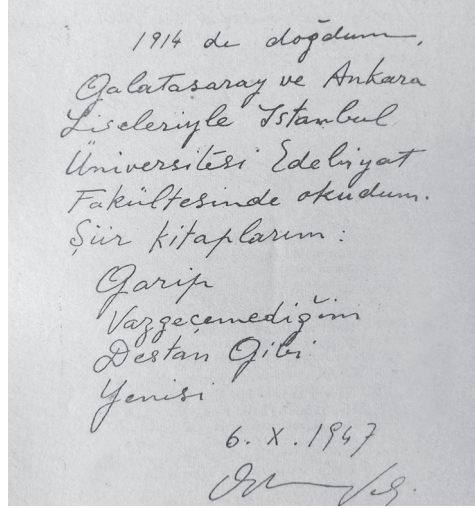 1914 de doğdum.
Galatasaray ve Ankara
Liseleriyle Istanbul
Üniversitesi Edebiyat
Fakültesinde okudum.
Şiir kitaplarım :
Garip
Vazgeçemediğim
Destan Gibi
Yenisi
6. X. 1947